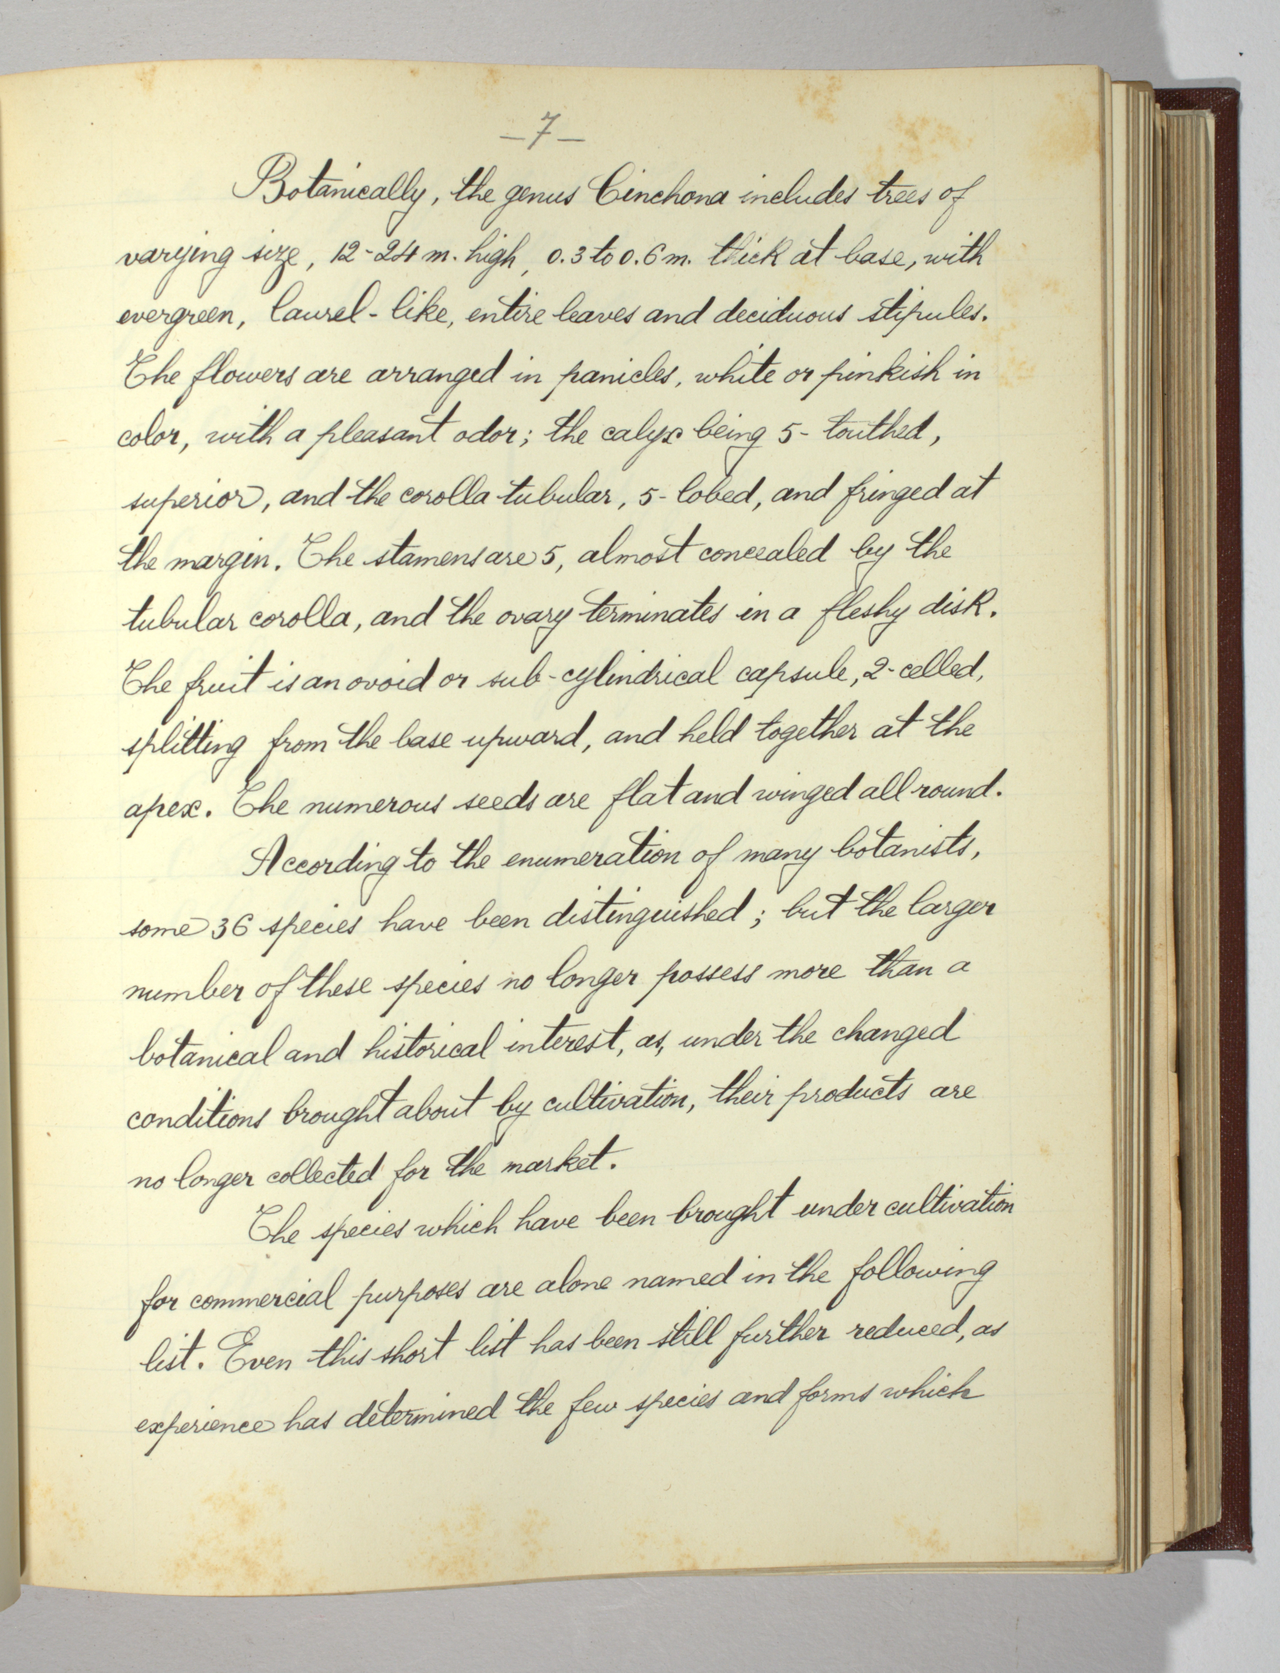 —7—
Botanically, the genus Cinchona includes trees of
varying size, 12-24 m. high, 0.3 to 0.6 m. thick at base, with
evergreen, laurel-like, entire leaves and deciduous stipules.
The flowers are arranged in panicles, white or pinkish in
color, with a pleasant odor; the calyx being 5-touthed,
superior, and the corolla tubular, 5-lobed, and fringed at
the margin. The stamens are 5, almost concealed by the
tubular corolla, and the ovary terminates in a fleshy disk.
The fruit is an ovoid or sub-cylindrical capsule, 2-celled,
splitting from the base upward, and held together at the
apex. The numerous seeds are flat and winged all round.
According to the enumeration of many botanists,
some 36 species have been distinguished; but the larger
number of these species no longer possess more than a
botanical and historical interest, as, under the changed
conditions brought about by cultivation, their products are
no longer collected for the market.
The species which have been brought under cultivation
for commercial purposes are alone named in the following
list. Even this short list has been still further reduced, as
experience has determined the few species and forms which